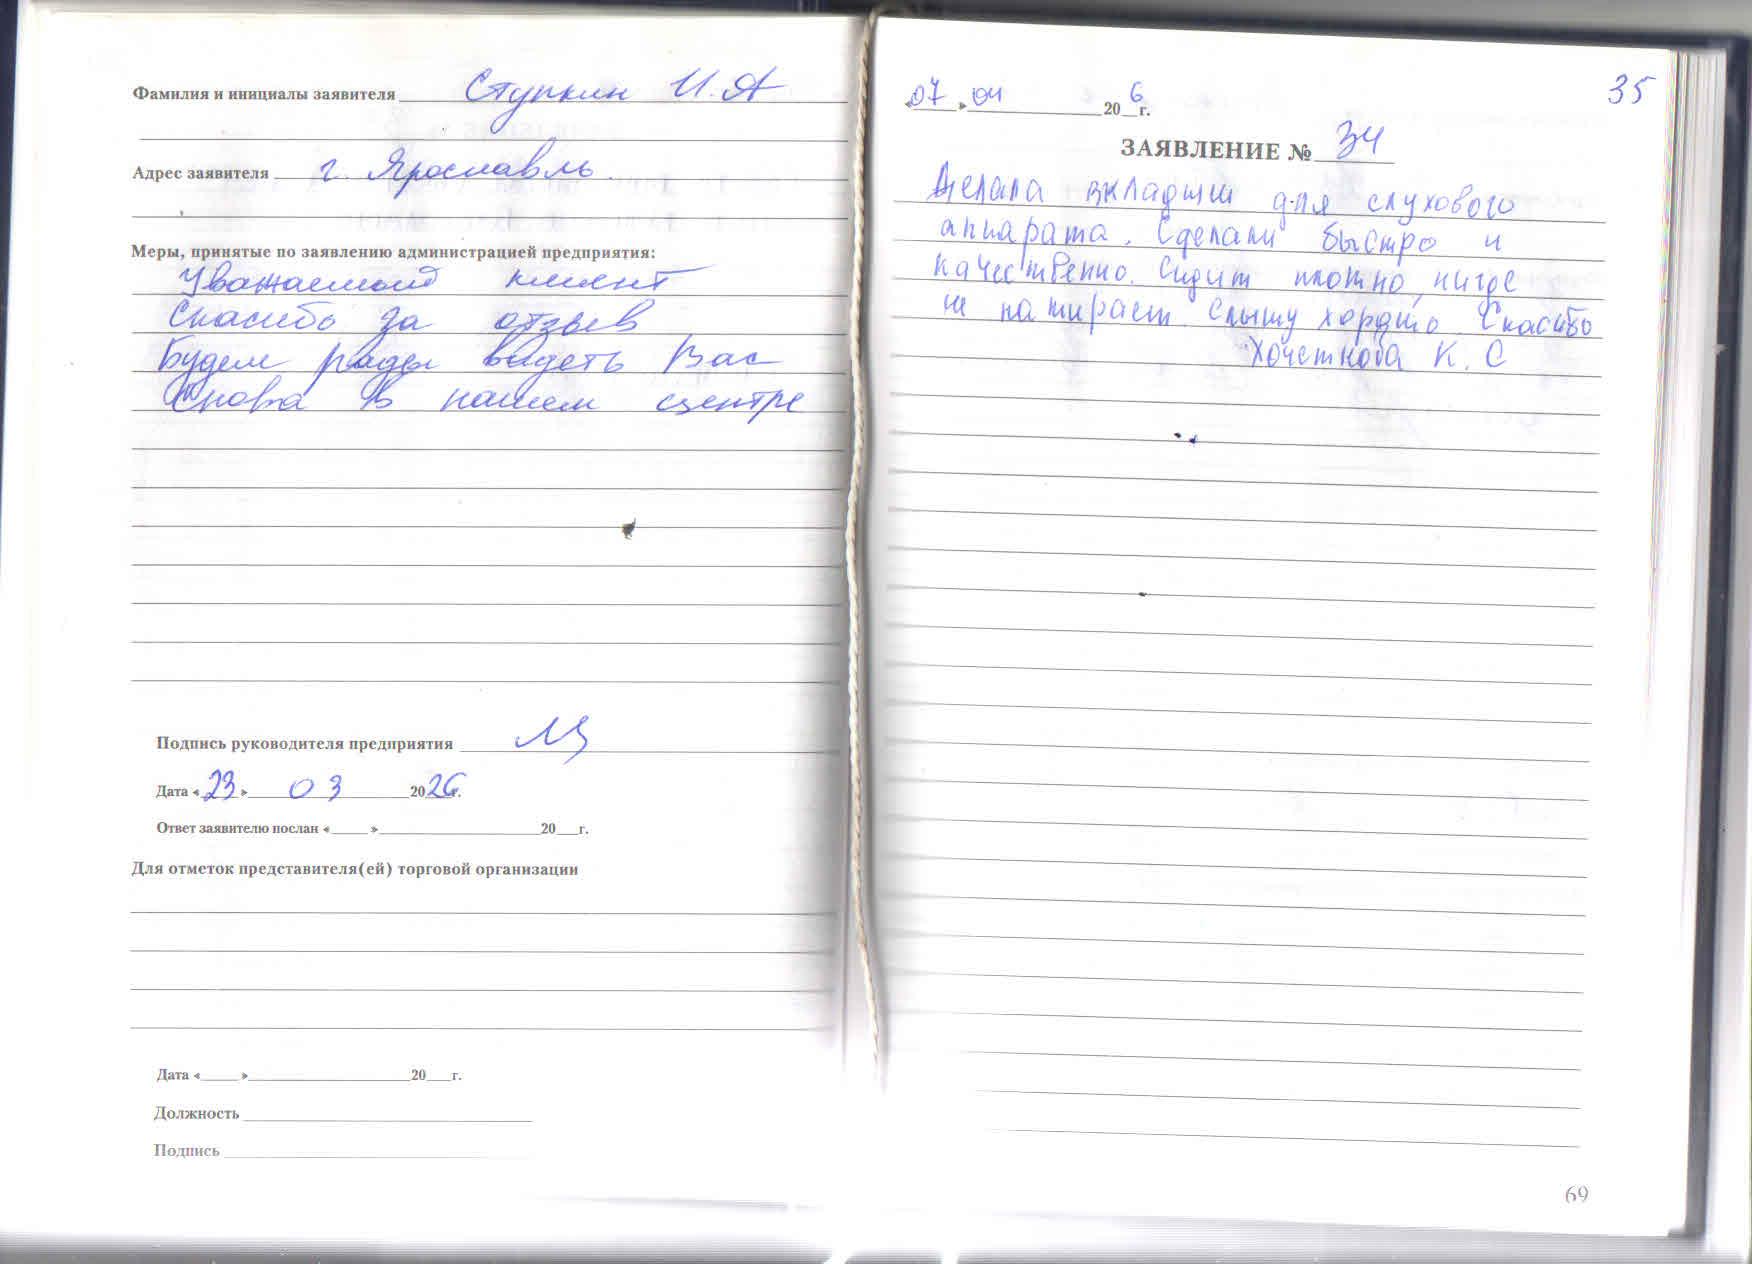 Фамилия и инициалы заявителя Ступкин И.А
Адрес заявителя г. Ярославль.
Меры, принятые по заявлению администрацией предприятия:
Уважаемый клиент
Спасибо за отзыв
Будем рады видеть Вас
Снова в нашем центре
Подпись руководителя предприятия
Дата «23» 03 2026г.
Ответ заявителю послан «____»____20__г.
Для отметок представителя(ей) торговой организации
Дата «____»____20__г.
Должность
Подпись
35
«07» 04 20 6 г.
ЗАЯВЛЕНИЕ № 34
Делала вкладыши для слухового
аппарата. Сделали быстро и
качественно. Сидит плотно, нигде
не натирает. Слышу хорошо. Спасибо
К. С
69